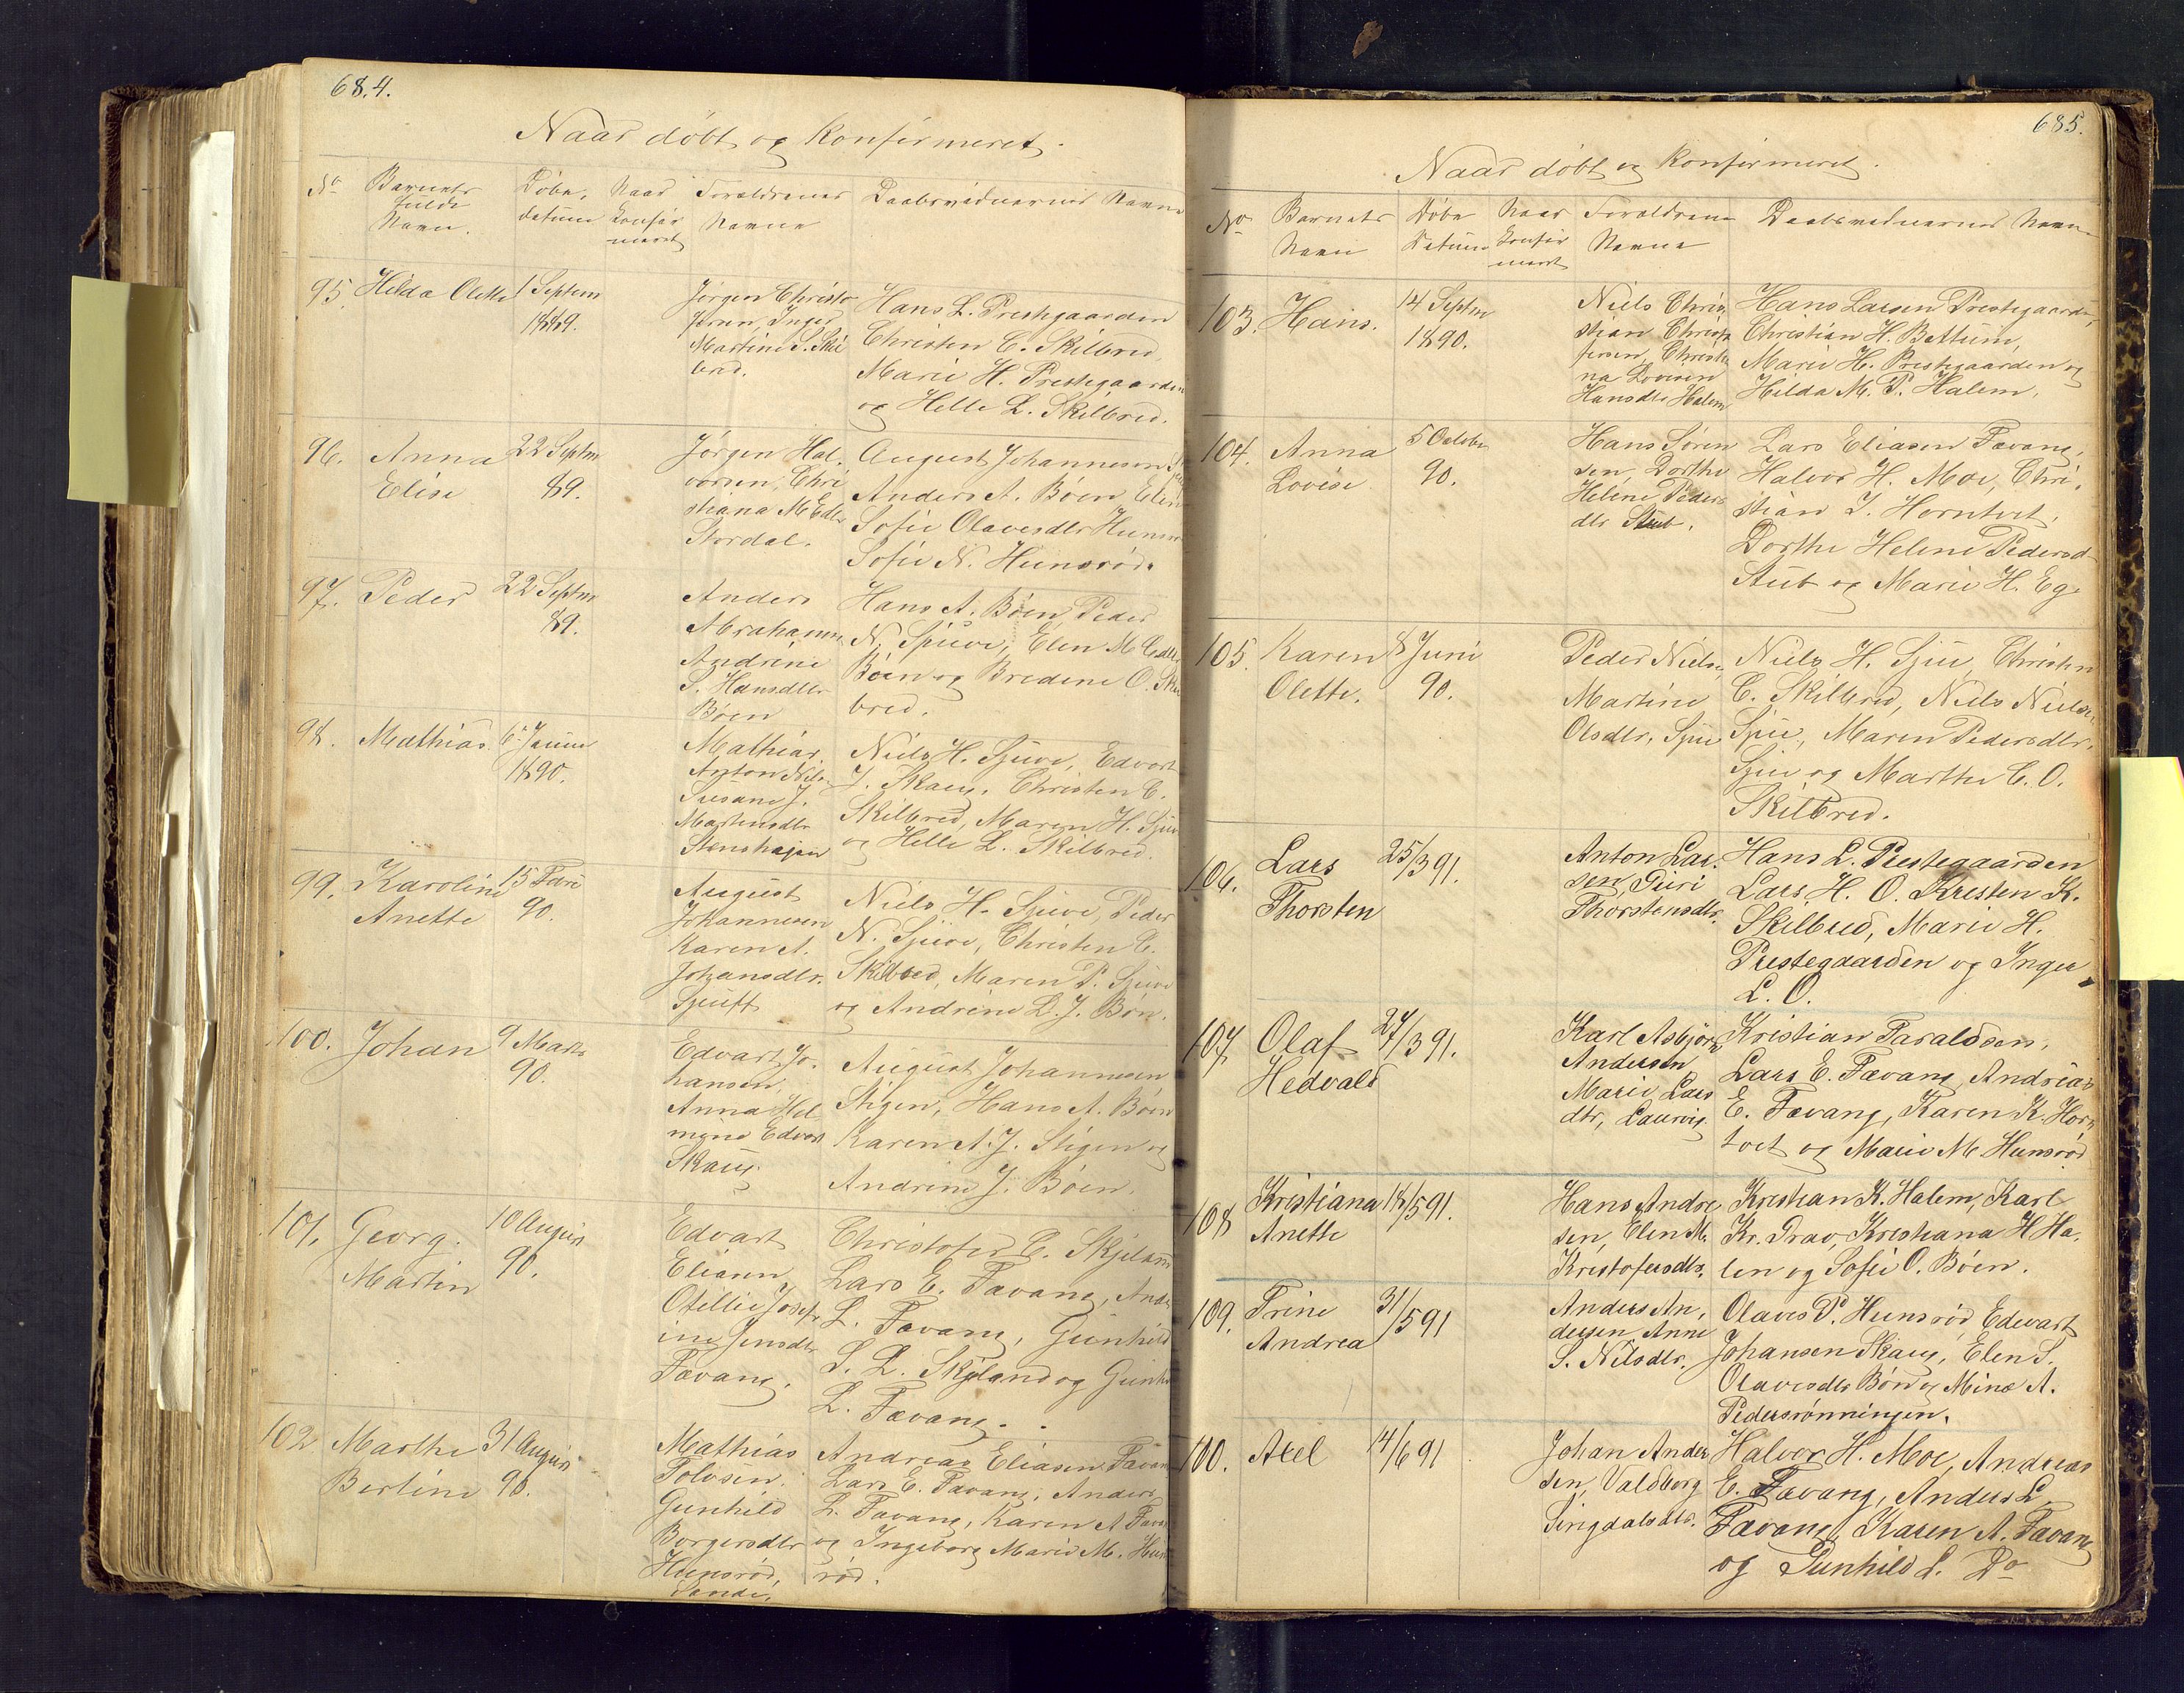 684.
Naar döbt og Konfirmeret.
No Barnets fulde Navn. Döbe, datum Naar Konfir meret Foreldrenes Navne Daabsvidnernes Navne
95. Hilda Olette 1 Septem 1889.
Jörgen Christo
fersen, Inger
Martine S. Skil
bred.
Hans L. Prestegaarden
Christen C. Skilbred,
Marie H. Prestegaarden
og Helle L. Skilbred.
96. Anna Elise 22 Septm 89.
Jörgen Hal,
vorsen, Chri
stiana M Edlr
Stordal.
August Johannesen
Anders A. Böen, Elen
Sofie Olavesdtr Hunsrö
Sofie N. Hunsröd.
97. Peder 22 Septm 89.
Anders
Abrahamsen
Andrine
S. Hansdtr
Böen
Hans A. Böen, Peder
N. Sjuve, Elen M
Böen og Bredine O. Skil
bred.
98. Mathias. 6. Januar 1890.
Mathias
Anton Nils.
Susane J.
Martensdtr
Stenshagen
Niels H. Sjuve, Edvart
J. Skaug, Christen C.
Skilbred, Maren H. Sjuve
og Helle L. Skilbred.
99. Karoline Anette 15 90.
August
Johannesen
Karen A.
Johansdtr.
Niels H. Sjuve, Peder
N. Sjuve, Christen C.
Skilbred, Maren P. Sjuve
og Andrine L. J. Bön.
100. Johan 9 Marts 90.
Edvart Jo-
hansen,
Anna Hel
mine Edvar
Skaug.
August Johannesen
Stigen, Hans A. Böen
Karen A. J. Stigen og
Andrine J. Böen.
101. Georg. Martin 10 August 90.
Edvart
Eliasen
Otellie Josef
ine Jensdtr
Favang.
Christofer C. Skjeland
Lars E. Favang, Ander
L. Favang, Gunhild
S. L. Skjeland og Gunh
L. Favang.
102 Marthe Bertine 31 August 90.
Mathias
Tolvsen
Gunhild
Borgersdtr
Hunsröd,
Sande.
Andreas Eliasen Favan
Lars E. Favang, Anders
L. Favang, Karen A Favan
og Ingeborg Marie M. Huns
röd.
685.
Naar döbt og Konfirmeret.
No Barnets Navn Döbe Datum Naar Konfir meret Foreldrenes Navne Daabsvidnernes Navne
103. Hans. 14 Septm 1890.
Niels Chris
stian Christ
fersen, Christi
na Lovisen
Hansdtr Halem
Hans Larsen Prestegaarden,
Christian H. Battum,
Marie H. Prestegaarden og
Hilda M. P. Halem.
104. Anna Lovise 5 October 90.
Hans Sören
sen, Dorthe
Helene Peders
dtr Stub.
Lars Eliasen Favang,
Halvor H. Moe, Chri,
stian J. Horntvet,
Dorthe Helene Pedersd
Stub og Marie H. Eg.
105. Karen Olette. 8 Juni 90.
Peder Niels.
Martine
Olsdtr. Sjue
Niels H. Sjue, Christen
C. Skilbred, Niels Nielse
Sjue, Maren Pedersdtr.
Sjue og Marthe C. O.
Skilbred.
106. Lars Thorsten 25/3 91.
Anton Lar.
sen, Guri
Thorstensdtr.
Hans L. Prestegaarden
Lars H. O. Kresten K.
Skilbred, Marie H.
Prestegaarden og Inger
L. O.
107. Olaf Hedvald 27/3 91.
Karl Asbjörn
Andersen,
Marie Lars
dtr, Laurvig.
Kristian Taraldsen,
Lars E. Favang, Andreas
E. Favang, Karen K. Horn
tvet og Marie M. Hunsröd
108 Kristiana Anette 18/5 91.
Hans Andre
sen, Elen M.
Kristofersdtr.
Krestian K. Halem, Karl
Kr. Grav, Krestiana H Ha.
len og Sofie O. Böen.
109. Trine Andrea 31/5 91
Anders An,
dersen, Anne
S. Nilsdtr.
Olaves P. Hunsröd, Edevart
Johansen Skaug, Elen S.
Olavesdtr Bön og Mina A.
Pedersrönningen.
100. Axel 14/6 91
Johan Ander
sen, Valdborg
Singdalsdtr.
Halvor H. Moe, Andreas
E. Favang, Anders L.
Favang, Karen A. Favang
og Gunhild L. Do